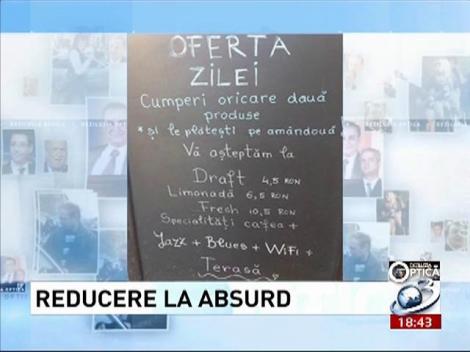 OFERTA
ZILEI
Cumperi oricare două
produse
* și le plătești pe amândouă
Vă așteptăm la
Draft 4,5 RON
Limonadă 6,5 RON
Fresh 10,5 RON
Specialități cafea +
Jazz + Blues + WiFi +
Terasă
REDUCERE LA ABSURD
DEZILUZIA
OPTICĂ
3
18:43